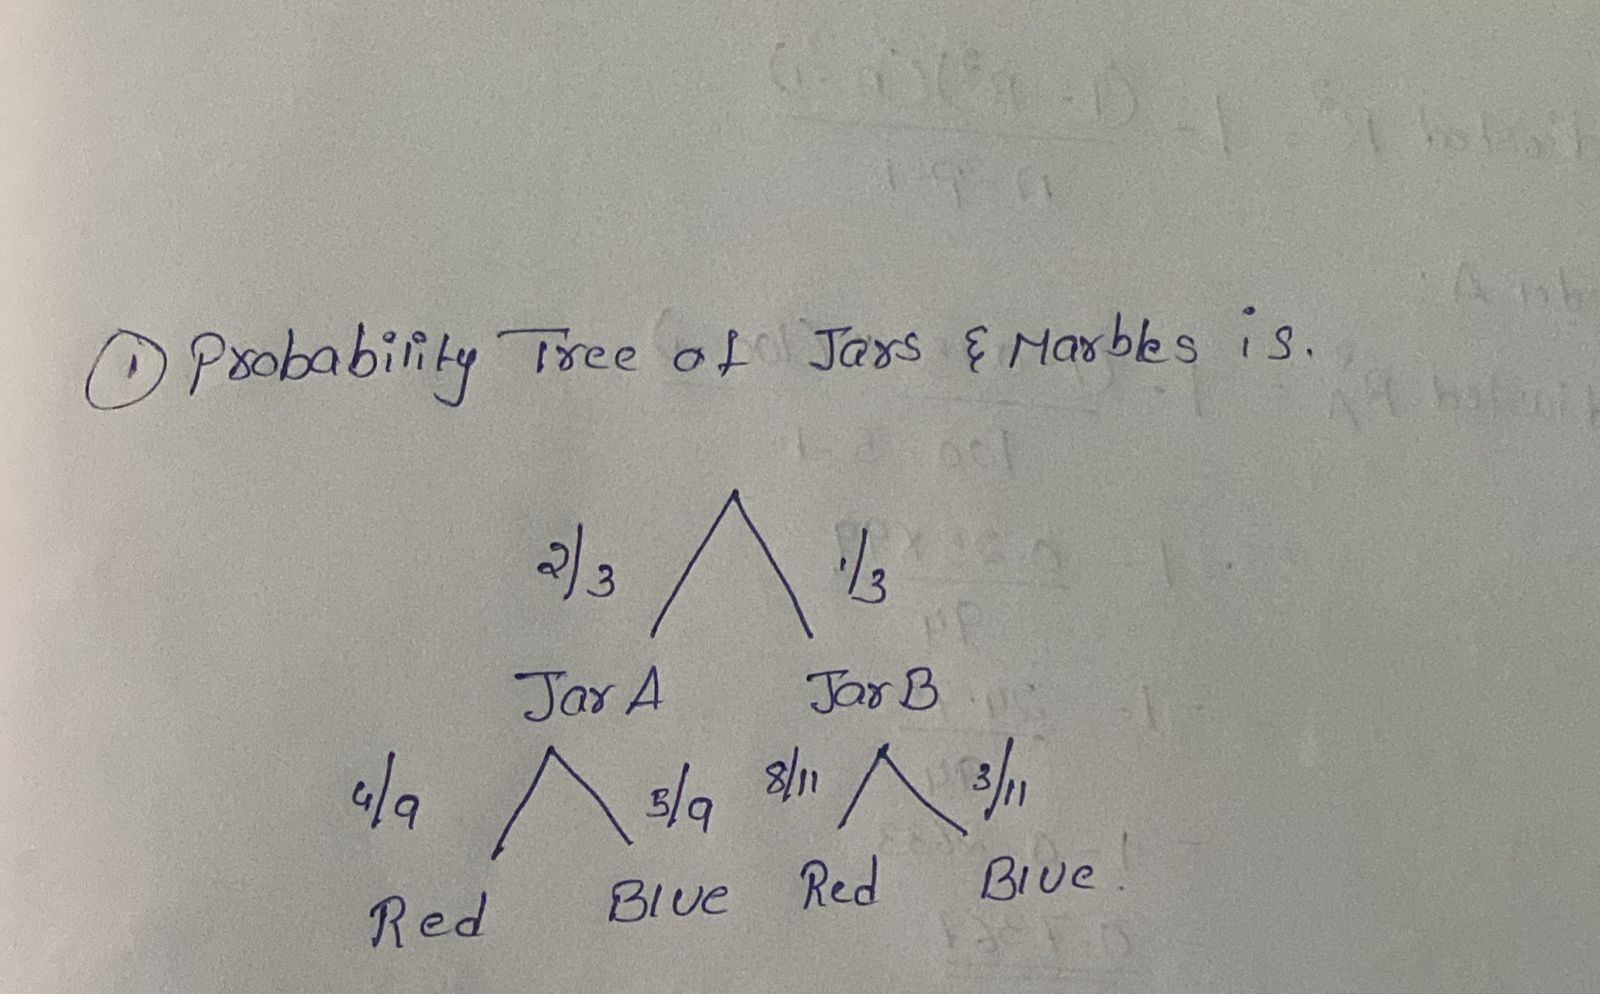 ① Probability Tree of Jars & Marbles is.
2/3 1/3
Jar A Jar B
4/9 5/9 8/11 3/11
Red Blue Red Blue.